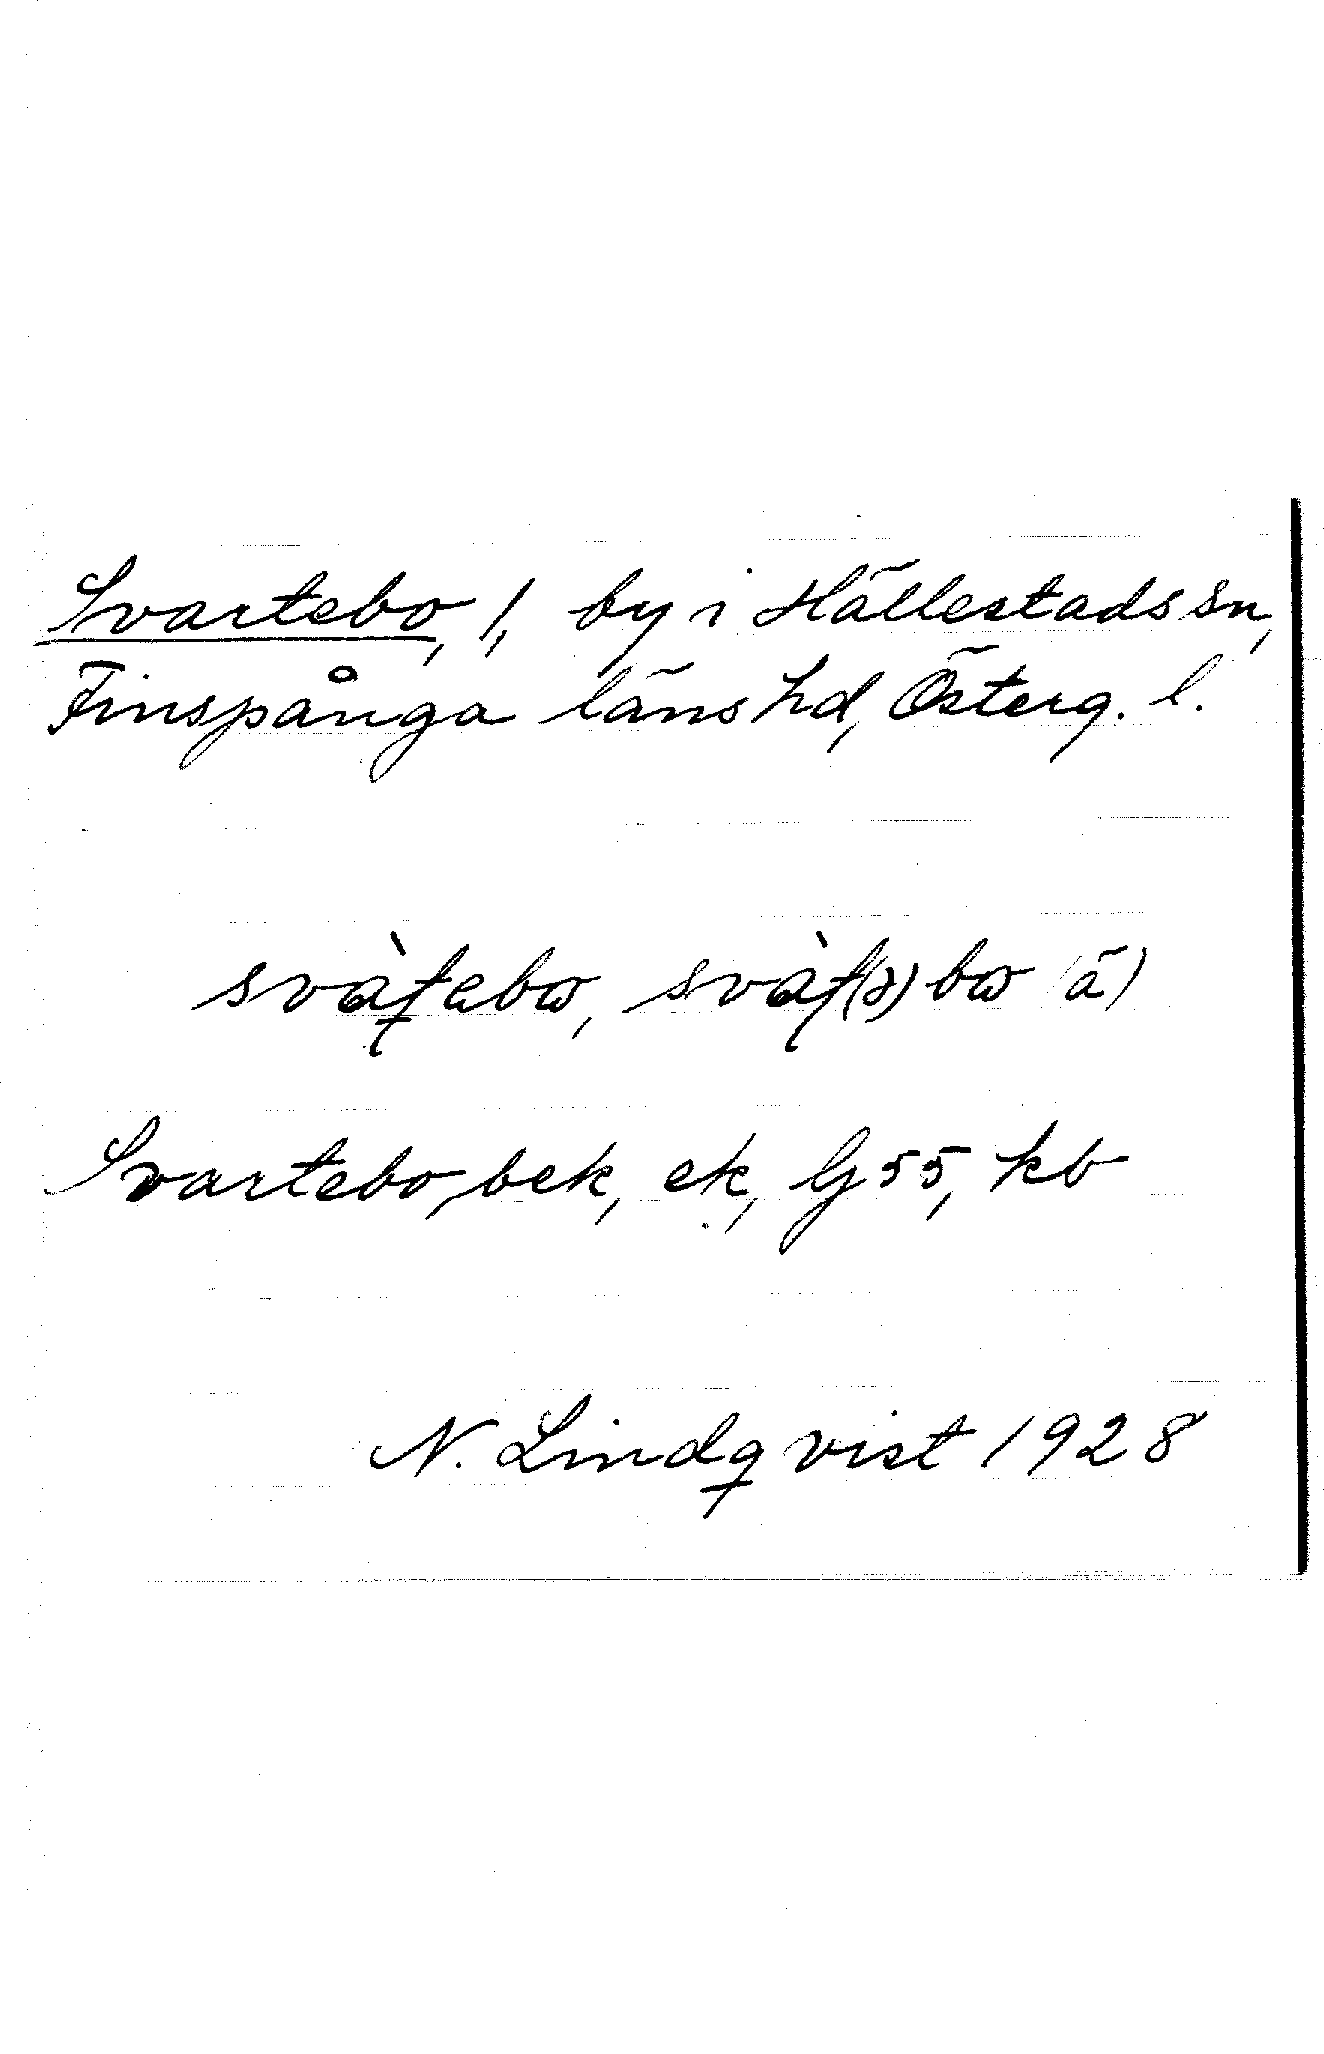 Svartebo, !, by i Hällestads sn,
Finspånga läns hd, Österg. l.
svàʈebɷ, svàʈ(ə)bɷ (ä)
Svartebo, bek, ek, G 55, kb
N. Lindqvist 1928